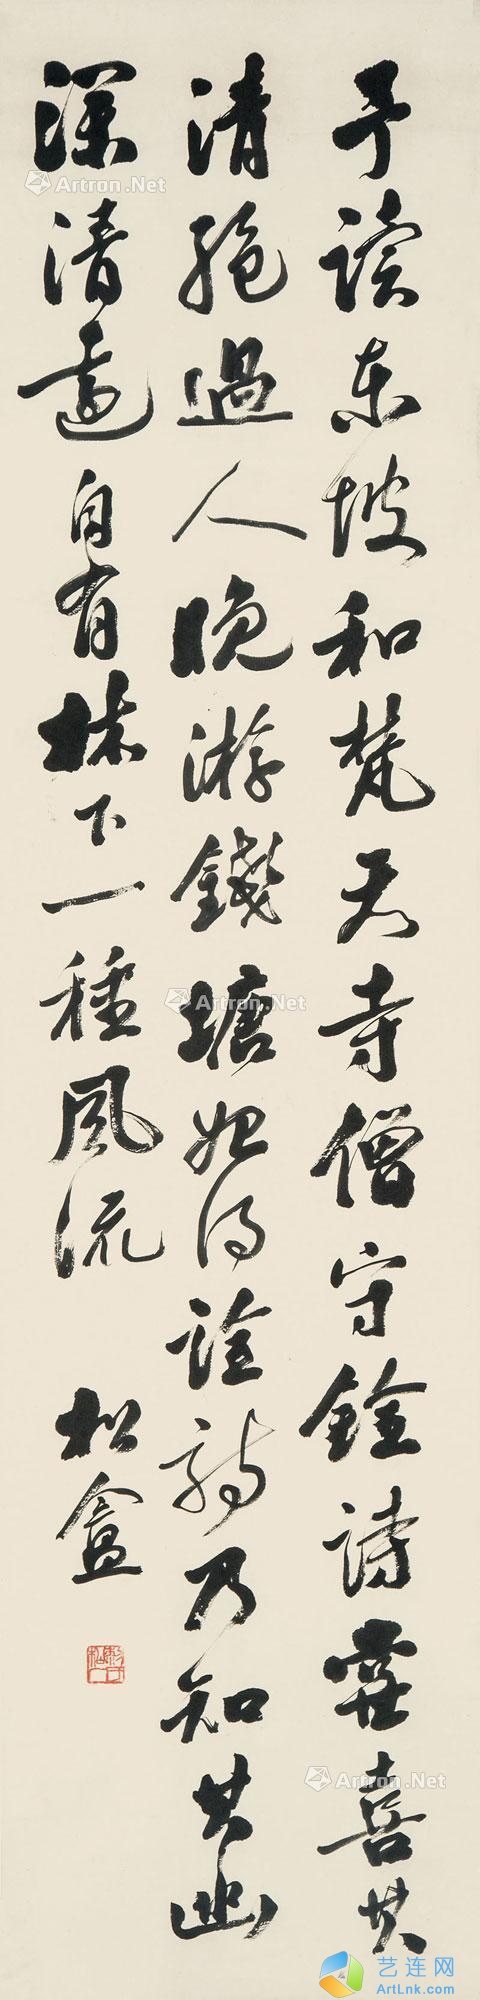 予读東坡和梵天寺僧守銓詩喜其
清绝過人晚游錢塘始得詮詩乃知其幽
深清遠自有林下一種風流
松盦
Artron.Net
Artron.Net
Artron.Net
Artron.Net
艺连网
ArtLnk.com